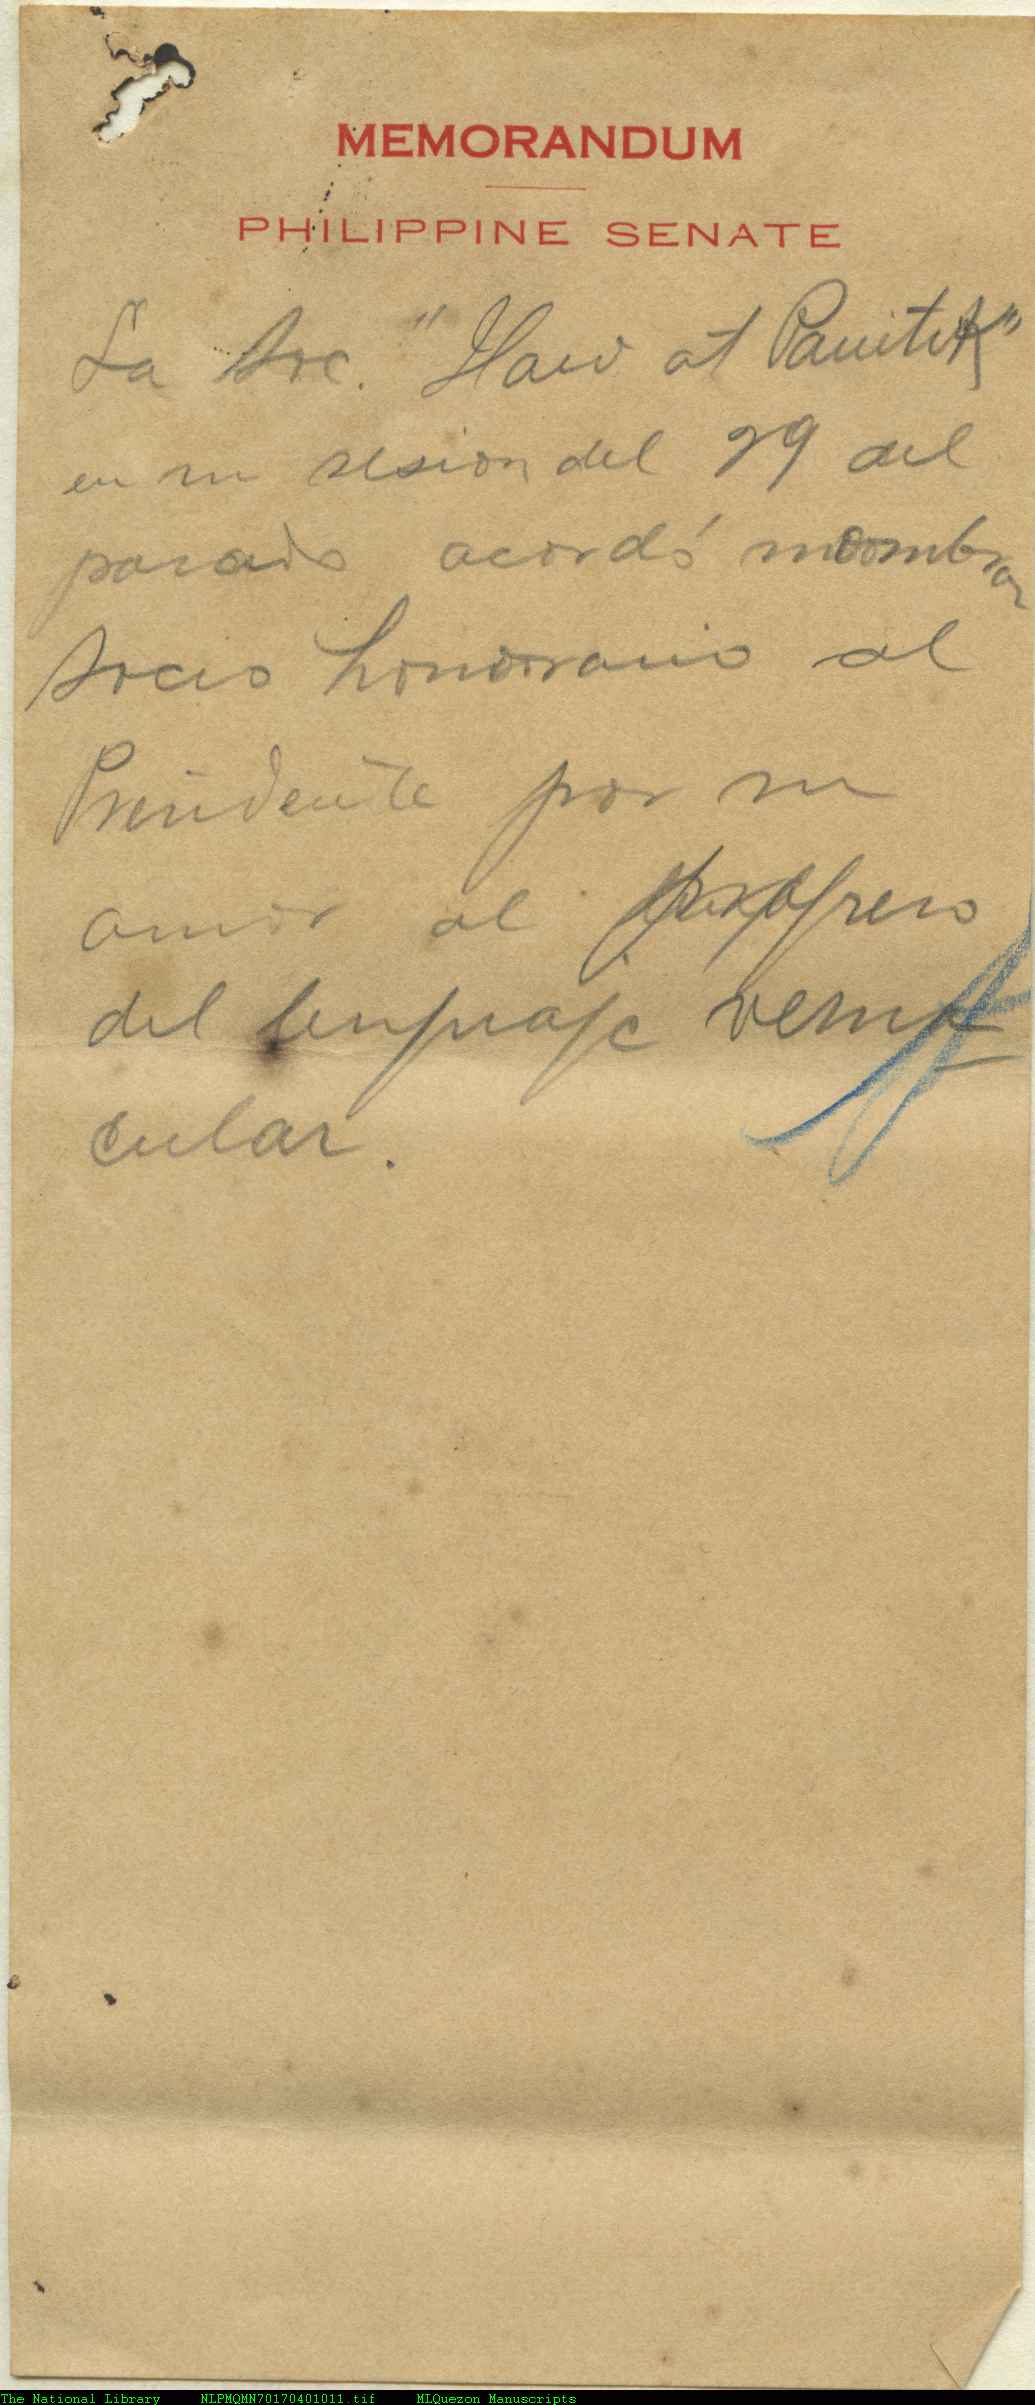 MEMORANDUM
PHILIPPINE SENATE
La Soc. "Ilaw at Panitik"
en su sesion del 29 del
pasado acordó noombrar
socio honorario al
Presidente por su
amor al progreso
del lenguaje verna
cular.
The National Library NLPMQMN70170401011.tif MLQuezon Manuscripts